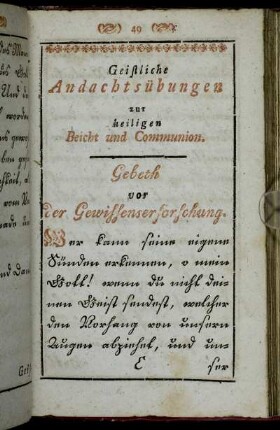 40
Geistliche
Andachtsübungen
zur
heiligen
Beicht und Communion.
Gebeth
vor
der Gewissenserforschung.
Wer kann seine eigene
Sünden erkennen, o mein
Gott! wenn du nicht dei-
nen Geist sendest, welcher
den Vorhang von unsern
Augen abziehet, und un-
C
ser